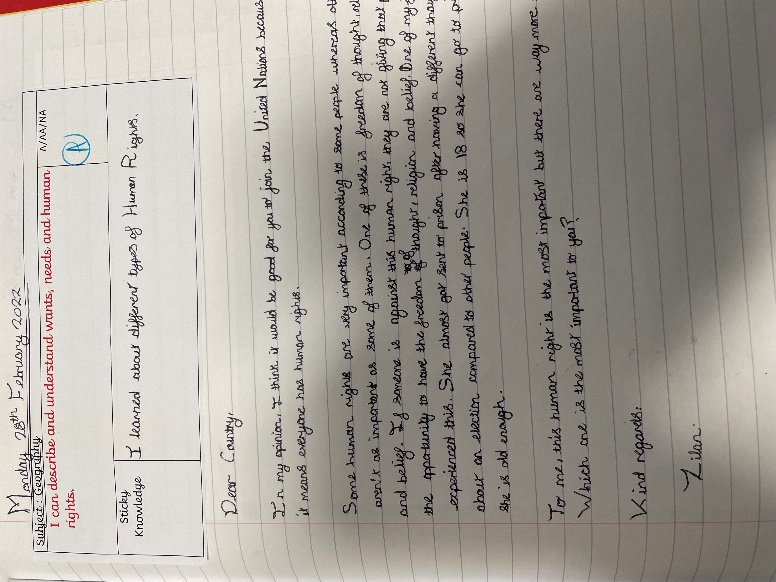 Monday 28th February 2022
Subject: Geography
I can describe and understand wants, needs and human rights.
A/AA/NA
A
Sticky Knowledge
I learned about different types of Human Rights.
Dear Country,
In my opinion, I think it would be good for you to join the United Nations
it means everyone has human rights.
Some human rights are very important according to some people whereas
aren't as important as some of them. One of these is freedom of thought,
and belief. If someone is against this human right, they are not giving that
the opportunity to have the freedom of thought, religion and belief. One of my
experienced this. She almost got sent to prison after having a different
about an election compared to other people. She is 18 so she can go to
she is old enough.
To me, this human right is the most important but there are way more.
Which one is the most important to you?
Kind regards:
Zilan.